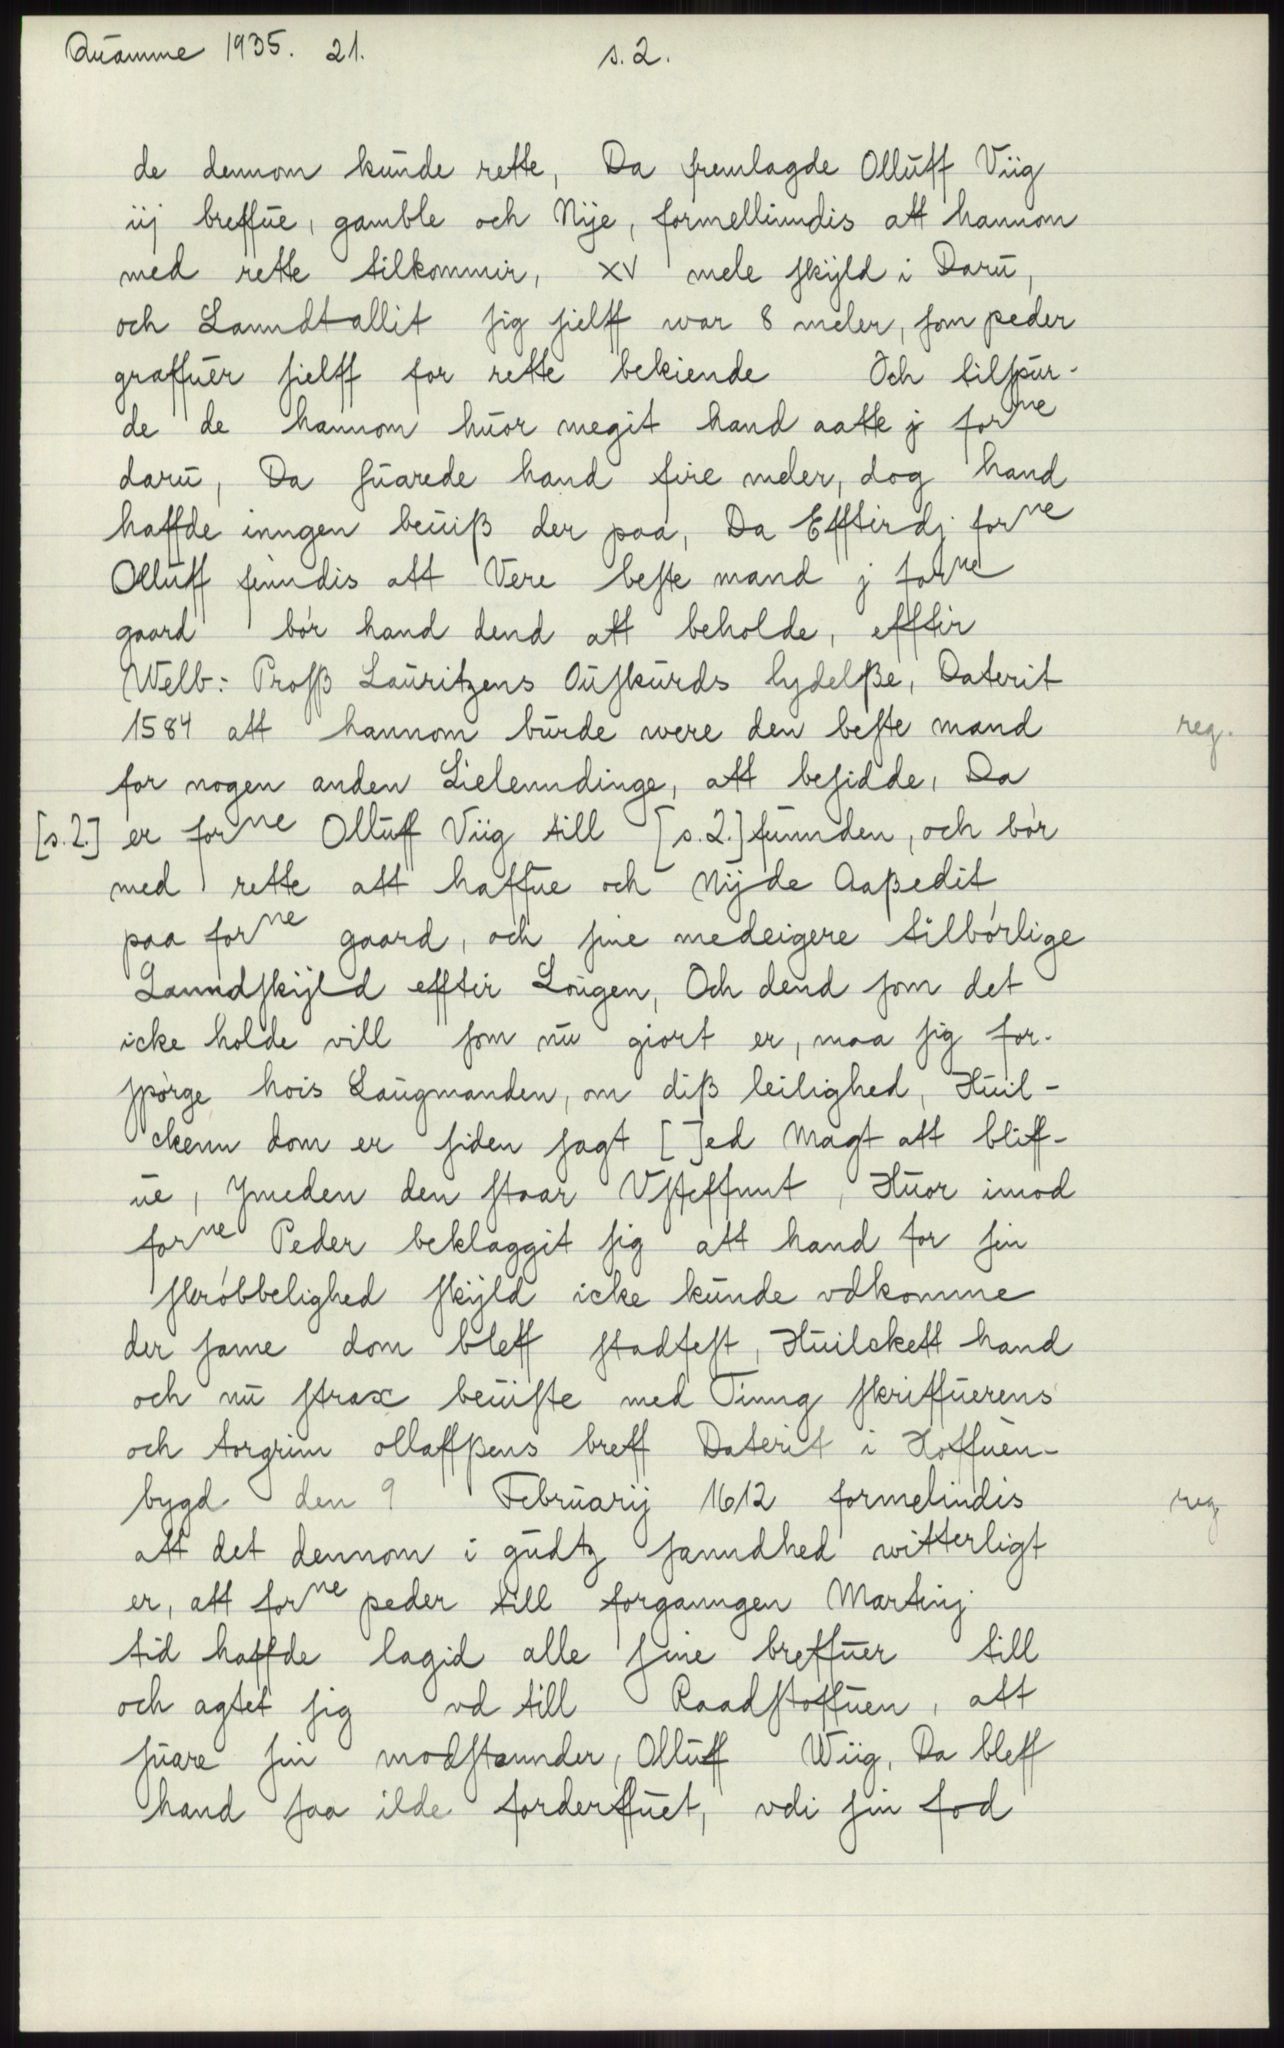 Quamme 1935. 21. s.2.
de dennom kunde rette, Da fremlagde Olluff Viig
iij breffue, gamble och Nÿe, formellinndis att hannom
med rette tilkommir, XV mele skÿld i Daru,
och Lanndtallit sig sielff war 8 meler, som peder
graffuer sielff for rette bekiende Och tilspur-
de de hannom huor megit hand aatte j forne
daru, Da suarede hand fire meler, dog hand
haffde inngen beuiß der paa, Da Efftirdj forne
Olluff finndis att Vere beste mand j forne
gaard bór hand dend att beholde, efftir
Welb: Profß Lauritzens Ouskurds lydelße, Daterit
1584 att hannom burde were den beste mand reg.
for nogen anden Lielenndinge, att besidde, Da
[s.2.] er forne Olluff Viig till [s.2.] funnden, och bór
med rette att haffue och Nÿde Aaßedit
paa forne gaard, och sine medeigere tilbórlige
Lanndskÿld efftir Lougen, Och dend som det
icke holde vill som nu giort er, maa sig for-
spórge hois Laugmanden, om diß leilighed, Huil-
ckenn dom er siden sagt [ ]ed Magt att bliff-
ue, ymeden den staar Vsteffnnt, Huor imod
forne Peder beklaggit sig att hand for sin
skróbbelighed skÿld icke kunde vdkomme
der same dom bleff stadfest, Huilckett hand
och nu strax beuiste med Tinng skriffuerens
och torgrim ollaffßens breff Daterit i Hoffuen-
bygd den 9 Februarij 1612 formelindis reg
att det dennom i gudtz sanndhed witterligt
er, att forne peder till forganngen Martinj
tid haffde lagid alle sine breffuer till
och agtet sig vd till Raadstoffuen, att
suare sin modstannder, Olluff Wiig, Da bleff
hand saa ilde forderffuet, vdi sin fod